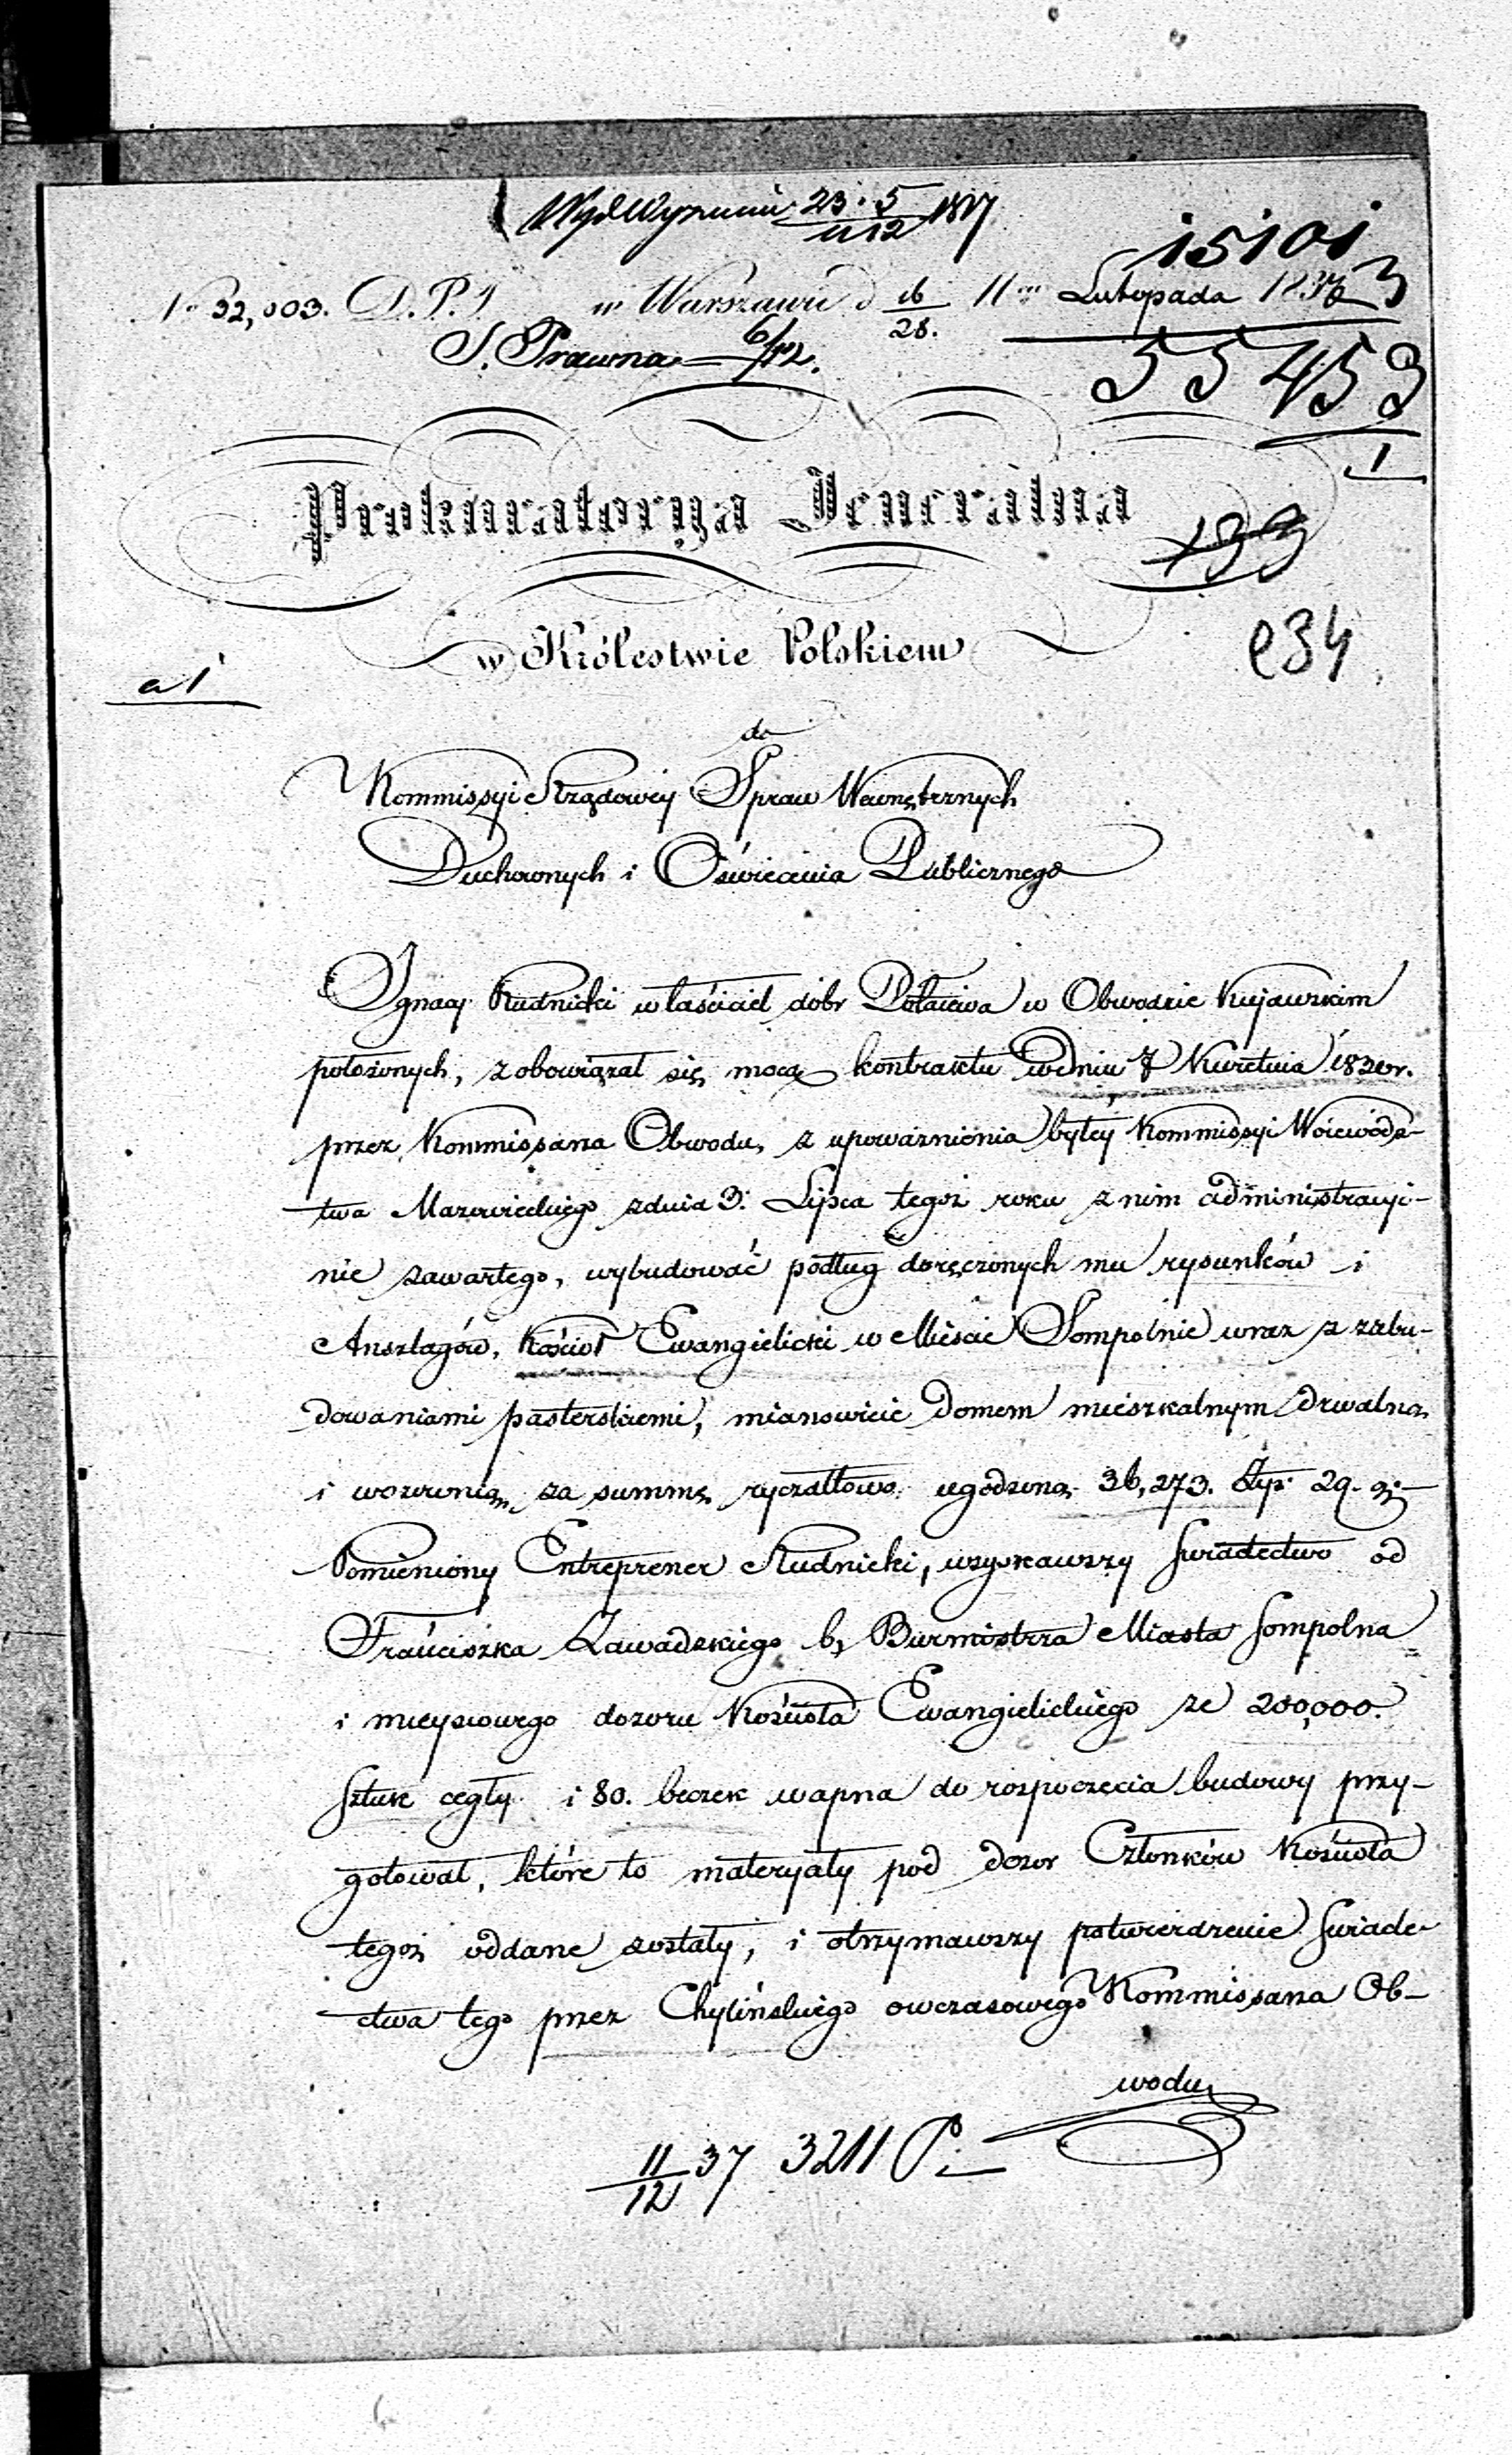 15101
No 32,003. D.P.1 w Warszawie d 16/28. Listopada 1837 3
S. Prawna 6/12.
55453
1
Prokuratorya Jeneralna
133
w Królestwie Polskiem
e34
a 1
do
Kommissyi Rządowéy Spraw Wewnętrznych
Duchownych i Oświecenia Publicznego
Ignacy Rudnicki właściciel dóbr Połaiewa w Obwodzie Kujawskim
położonych, zobowiązał się mocą kontraktu w dniu 7 Kwietnia 1830r.
przez Kommissarza Obwodu, z upoważnienia byłey Kommissyi Woiewódz-
twa Mazowieckiego z dnia 3. Lipca tegoż roku z nim administracyi-
nie zawartego, wybudować podług doręczonych mu rysunków i
Anszlagów, Kościoł Ewangielicki w Mieście Sompolnie wraz z zabu-
dowaniami pasterskiemi, mianowicie domem mieszkalnym drwalną
i wozownią, za summę ryczałtowo ugodzoną 36,273. Złp: 29. gr:
Pomieniony Entreprener Rudnicki, uzyskawszy Świadectwo od
Franciszka Zawadzkiego b, Burmistrza Miasta Sompolna
i mieyscowego dozoru Kościoła Ewangielickiego że 200,000.
Sztuk cegły i 80. beczek wapna do rozpoczęcia budowy przy-
gotował, które to materyały pod dozor Członków Kościoła
tegoż oddane zostały, i otrzymawszy potwierdzenie Świade-
ctwa tego przez Chylińskiego owczasowego Kommissarza Ob-
wodu
11/12 37 3211 P.